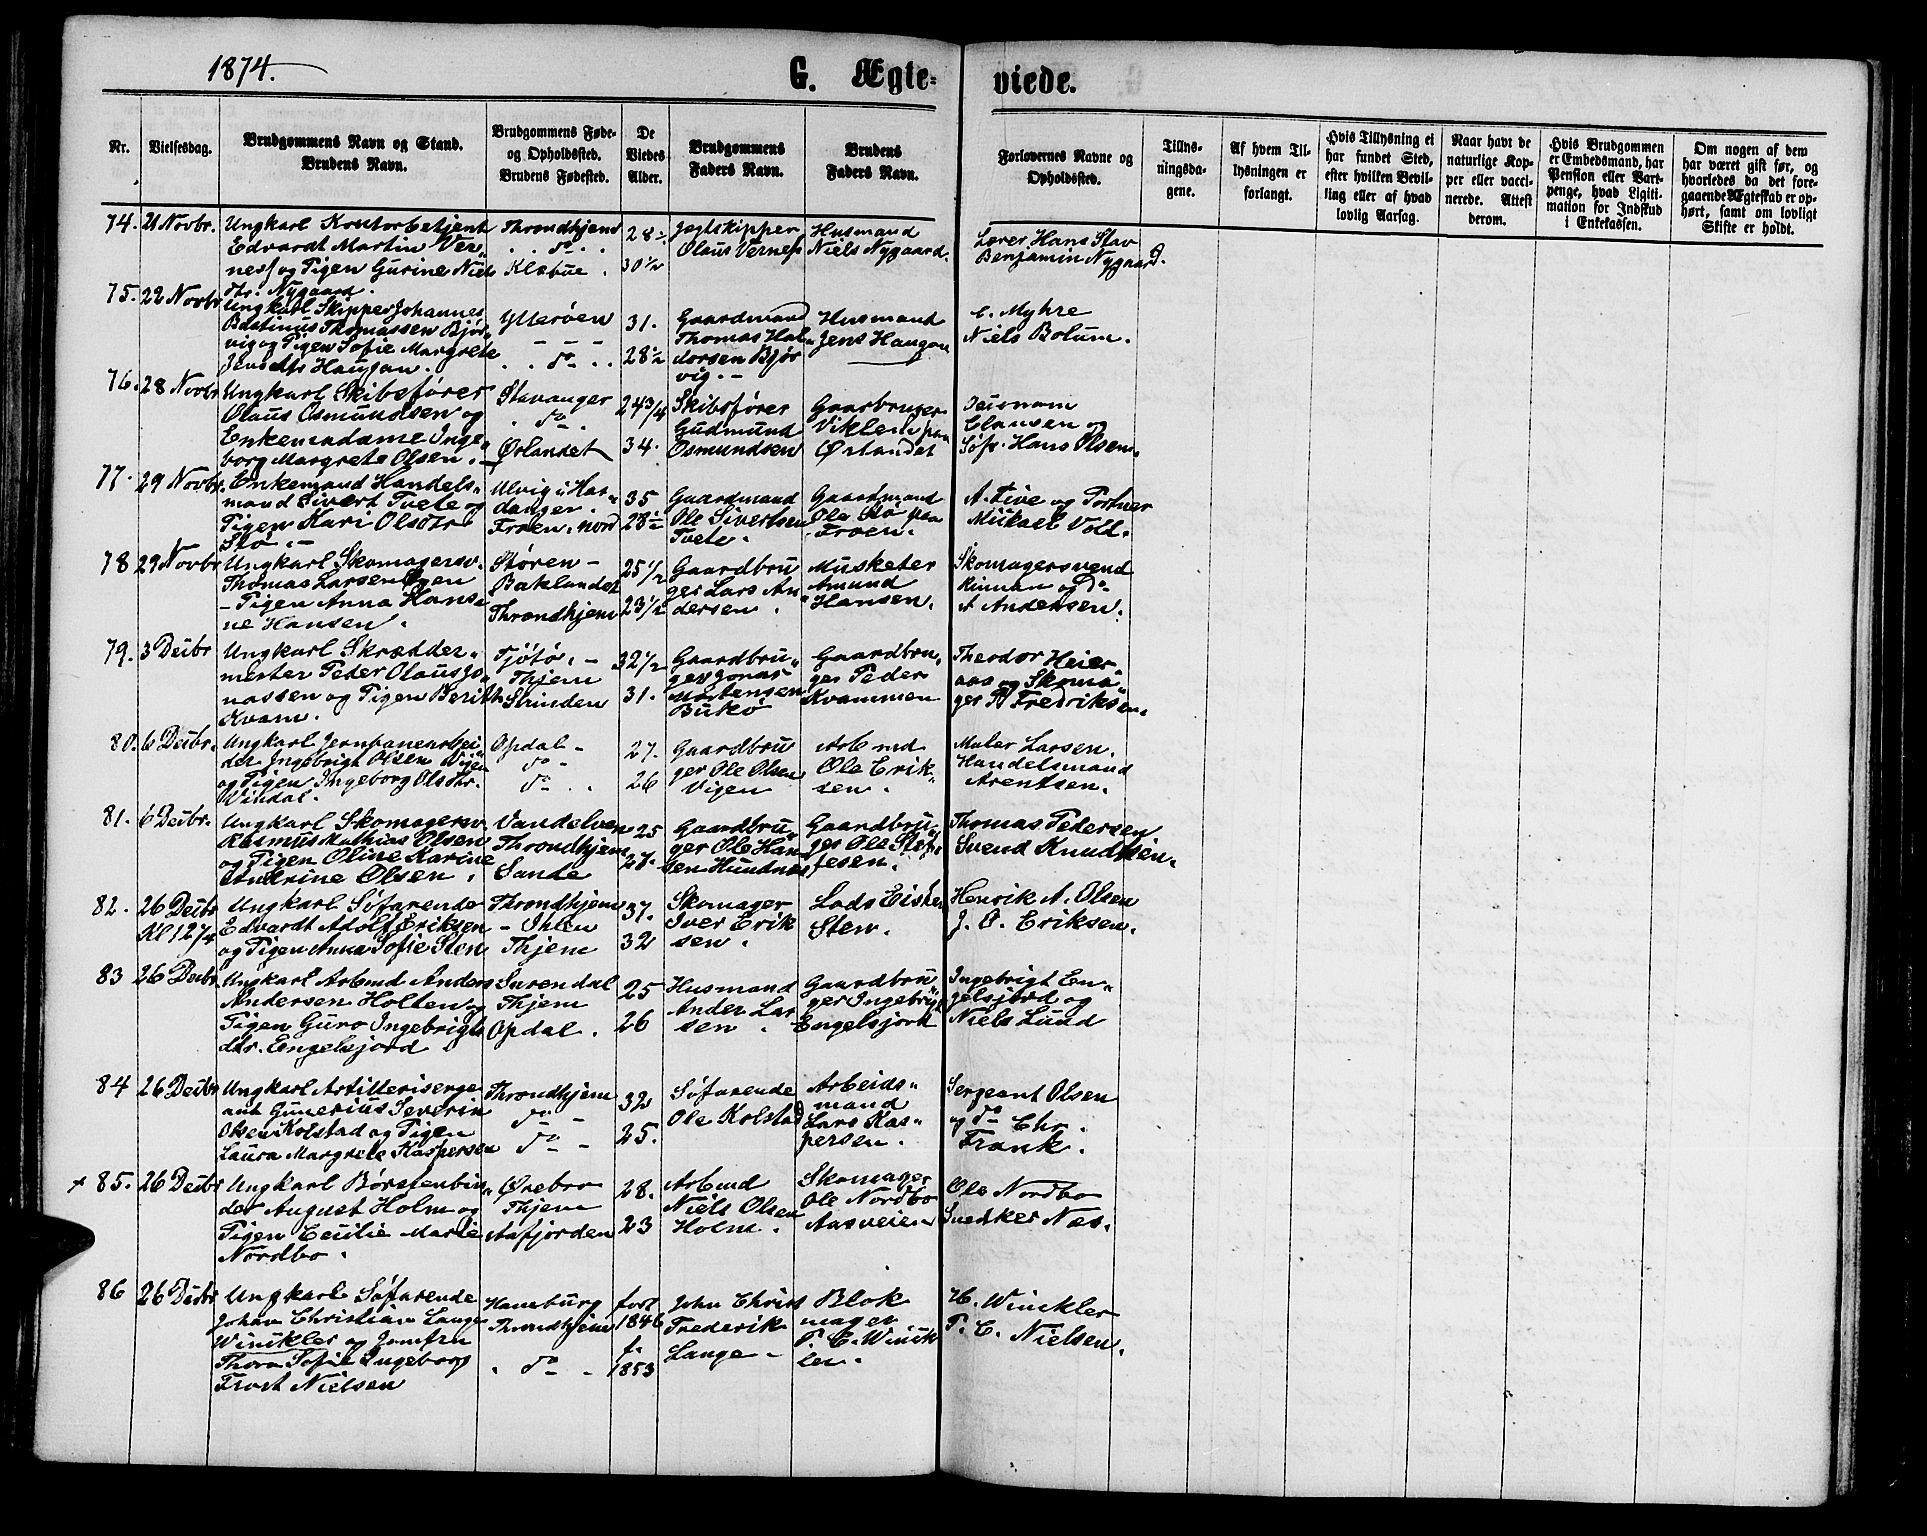 1874.
G. Ægte-
viede.
Nr.
Vielsesdag.
Brudgommens Navn og Stand.
Brudens Navn.
Brudgommens Føde-
og Opholdssted.
Brudens Fødested.
De
Viedes
Alder.
Brudgommens
Faders Navn.
Brudens
Faders Navn.
Forlovernes Navne og
Opholdssted.
Tillys-
ningsda-
gene.
Af hvem Til-
lysningen er
forlangt.
Hvis Tillysning ei
har fundet Sted,
efter hvilken Bevil-
ling eller af hvad
lovlig Aarsag.
Naar havt de
naturlige Kop-
per eller vacci-
nerede. Attest
derom.
Hvis Brudgommen
er Embedsmand, har
Pension eller Vart-
penge, hvad Ligiti-
mation for Indskud
i Enkekassen.
Om nogen af dem
har været gift før, og
hvorledes da det fore-
gaaende Ægteskab er op-
hørt, samt om lovligt
Skifte er holdt.
74. 21 Novbr.
Ungkarl Kontorbetjent
Edvardt Martin Ver-
ness og Tigen Gurine Niels
dtr. Nygaard.
Throndhjem
do
Klæbue.
28½
30½
Jagtskipper
Olaus Verness
Husmand
Niels Nygaard.
Lærer Hans Stav
Benjamin Nygaard.
75. 22 Novbr
Ungkarl Skipper Johannes
Thomassen Bjør-
vig og Pigen Sofie Margrete
Jensdtr Haugan.
Ytterøen
do
31.
28½
Gaardmand
Thomas Hal-
dorsen Bjør
vig.
Husmand
Jens Haugan
E. Myhre
Niels Bolum.
76. 28 Novbr
Ungkarl Skibsfører
Olaus Osmundsen og
Enkemadame Inge-
borg Margrete Olsen.
Stavanger
do
Ørlandet
24¾
34.
Skibsfører
Gudmund
Osmundsen
Gaarbruger
Viklem paa
Ørlandet
Clausen og
Søfr. Hans Olsen.
77. 29 Novbr.
Enkemand Handels-
mand Sivert Tvete og
Pigen Kari Olsdtr.
Stø.
Ulvig i Har-
danger.
Froen, nord
35
28½
Gaardmand
Ole Sivertsen
Tvete.
Gaardmand
Ole Stø paa
Froen.
A. Five og Portner
Mikael Voll.
78 29 Novbr
Ungkarl Skomagersv.
Thomas Larsen
Pigen Anna Hans-
ne Hansen.
Støren
Baklandet
Throndhjem
25½
23½
Gaardbru
ger Lars An-
dersen.
Musketer
Amund
Hansen.
Skomagersvend
Rinnan og Do
A Andersen.
79. 3 Decbr
Ungkarl Skrædder-
mester Peder Olaus Jo-
nassen og Pigen Berith
Kvam.
Tjøtø,
Thjem
Strinden
32½
31.
Gaardbru-
ger Jonas
Mortensen
Butkø
Gaardbru-
ger Peder
Kvammen
Theodor Heier-
aas og Skoma-
ger P Fredriksen.
80. 6 Decbr.
Ungkarl Jernbanearbei-
der Ingebrigt Olsen Vigen
og Pigen Ingeborg Olsdtr.
Vindal.
Opdal
do
do
27.
26
Gaardbru
ger Ole Olsen
Vigen
Arbmd
Ole Erik-
sen.
Maler Larsen.
Handelsmand
Arentsen.
81. 6 Decbr.
Ungkarl Skomagersv.
Rasmus Mathias Olsen
og Pigen Oline Karine
Olsen.
Vandelven
Throndhjem
Sande
25
27.
Gaardbru-
ger Ole Han-
sen Hundnæs
Gaardbru-
ger Ole Stef-
fesen.
Thomas Pedersen
Svend Knudtsen.
82. 26 Decbr
Kl 12¾
Ungkarl Søfarende
Edvardt Adolf Eriksen
og Pigen Anna Sofie Sten
Throndhjem
Ihlen
Thjem
37.
32
Skomager
Iver Erik
sen.
Lods
Sten.
Henrik A. Olsen
J. O. Eriksen.
83 26 Decbr.
Ungkarl Arbmd Anders
Andersen Holten og
Pigen Guro Ingebrigts
dtr. Engelsjord
Surendal
Thjem
Opdal.
25
26
Husmand
Ander Lar
sen.
Gaardbru-
ger Ingebrigt
Engelsjord
Ingebrigt En-
gelsjord og
Niels Lund
84 26 Decbr
Ungkarl Artilleriserge
ant Gunerius Severin
Olsen Kolstad og Pigen
Laura Margrete Kaspersen
Throndhjem
do
do
32
25.
Søfarende
Ole Kolstad
Arbeids-
mand
Lars Kas-
persen.
Sergeant Olsen
og do Chr.
Frank.
85. 26 Decbr
Ungkarl Børstenbin-
der August Holm og
Pigen Cecilie Marie
Nordbo.
Ørebro
Thjem
Aafjorden
28.
23
Arbmd
Niels Olsen
Holm.
Skomager
Ole Nordbo
Aasveien
Ole Nordbo
Snedker Næs.
86 26 Decbr
Ungkarl Søfarende
Johan Christian Lange
Winckler og Jomfru
Thora Sofie Ingeborg
Frost Nielsen
Hamburg
Throndhjem
do
født
1846
f.
1853
John Christ
Frederik
Lange
Blok
mager
T. C. Winck
ler.
H. Winckler
T. C. Nielsen.